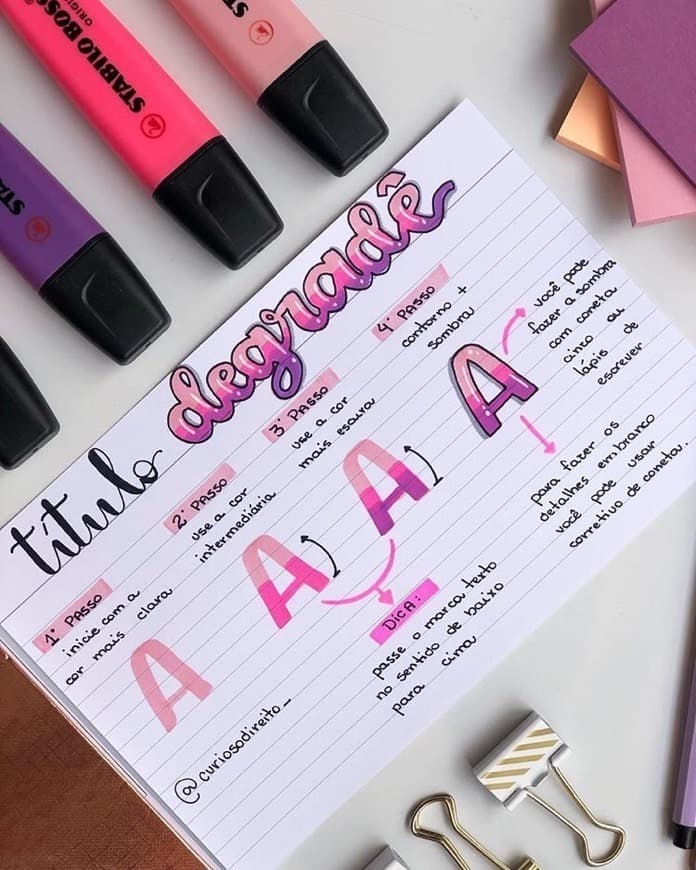 STABILO BOSS
ORIGI
STABI
título degradê
1º PASSO
inicie com a
cor mais clara
2º PASSO
use a cor
intermediária
3º PASSO
use a cor
mais escura
4º PASSO
contorno +
sombra
você pode
fazer a sombra
com caneta
cinza ou
lápis de
escrever
para fazer os
detalhes em branco
você pode usar
corretivo de caneta.
DICA:
passe o marca texto
no sentido de baixo
para cima
A
A
A
A
@curiosodireito_